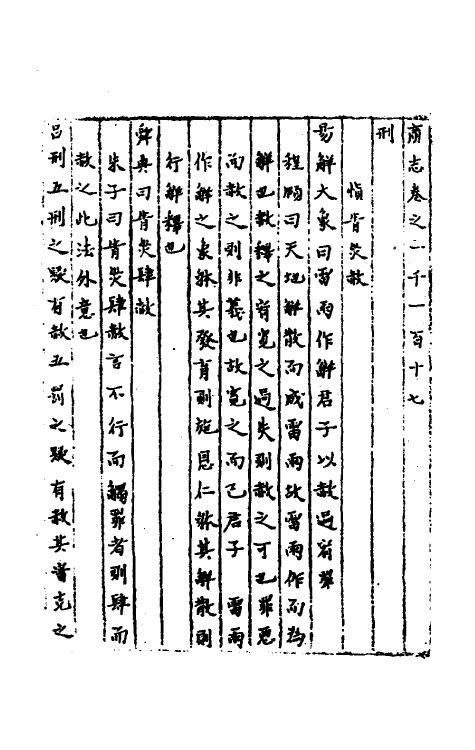 廟志卷之一千一百十七
刑
慎眚災赦
易解大象曰雷雨作解君子以赦過宥罪
程頤曰天地解散而成雷雨故雷雨作而為
解也赦釋之宥寬之過失則赦之可也罪惡
而赦之則非義也故寬之而已君子 雷雨
作解之象體其發育則施恩仁體其解散則
行解釋也
舜典曰眚災肆赦
朱子曰眚災肆赦言不行而觸罪者則肆而
赦之此法外意也
呂刑五刑之疑有赦五罰之疑有赦其審克之